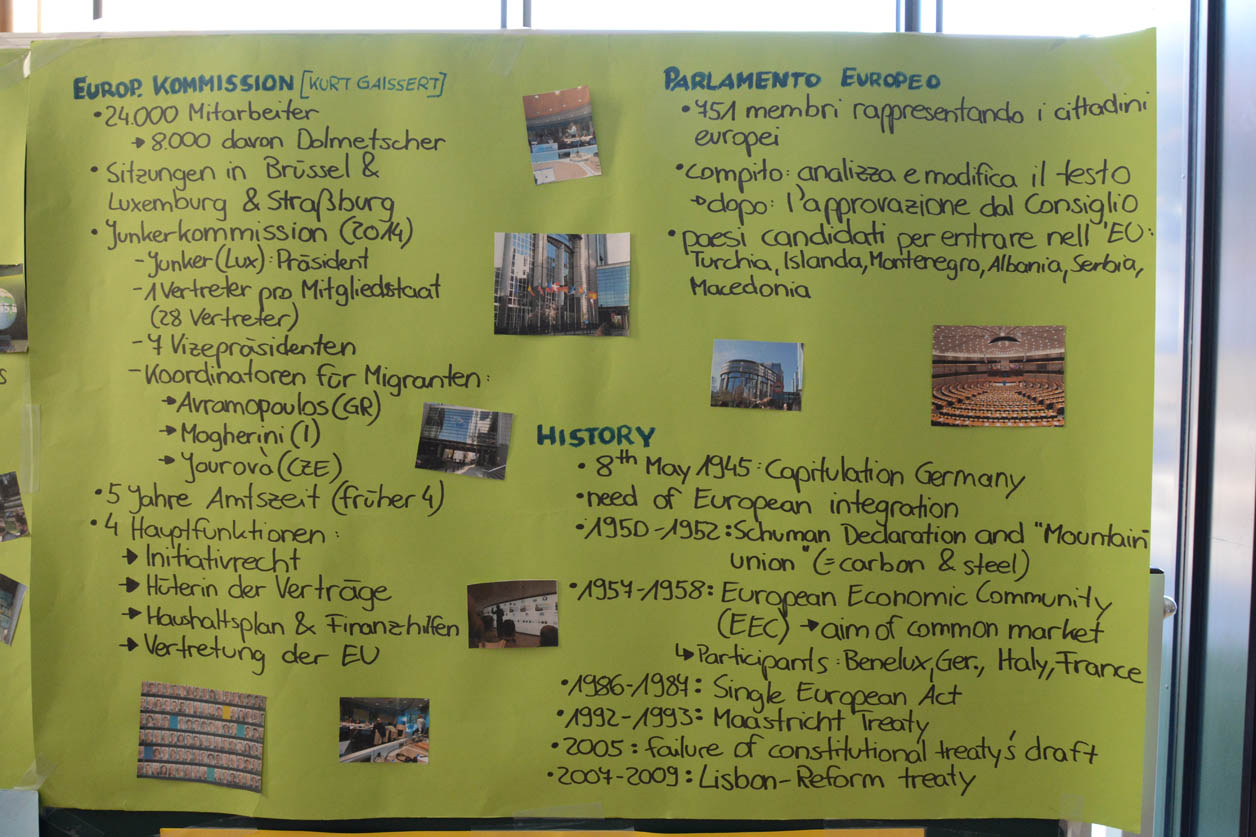 EUROP. KOMMISSION [KURT GAISSERT]
• 24.000 Mitarbeiter
→ 8.000 davon Dolmetscher
• Sitzungen in Brüssel &
Luxemburg & Straßburg
• Junkerkommission (2014)
- Junker (Lux): Präsident
- 1 Vertreter pro Mitgliedstaat
(28 Vertreter)
- 7 Vizepräsidenten
- Koordinatoren für Migranten:
→ Avramopoulos (GR)
→ Mogherini (I)
→ Yourovà (CZE)
• 5 Jahre Amtszeit (früher 4)
• 4 Hauptfunktionen:
→ Initiativrecht
→ Hüterin der Verträge
→ Haushaltsplan & Finanzhilfen
→ Vertretung der EU
PARLAMENTO EUROPEO
• 751 membri rappresentando i cittadini
europei
• compito: analizza e modifica il testo
→ dopo: l'approvazione dal Consiglio
• paesi candidati per entrare nell'EU:
Turchia, Islanda, Montenegro, Albania, Serbia,
Macedonia
HISTORY
• 8th May 1945: Capitulation Germany
• need of European integration
• 1950-1952: Schuman Declaration and "Mountain
union" (= carbon & steel)
• 1957-1958: European Economic Community
(EEC) → aim of common market
↳ Participants: Benelux, Ger., Italy, France
• 1986-1987: Single European Act
• 1992-1993: Maastricht Treaty
• 2005: failure of constitutional treaty's draft
• 2007-2009: Lisbon-Reform treaty